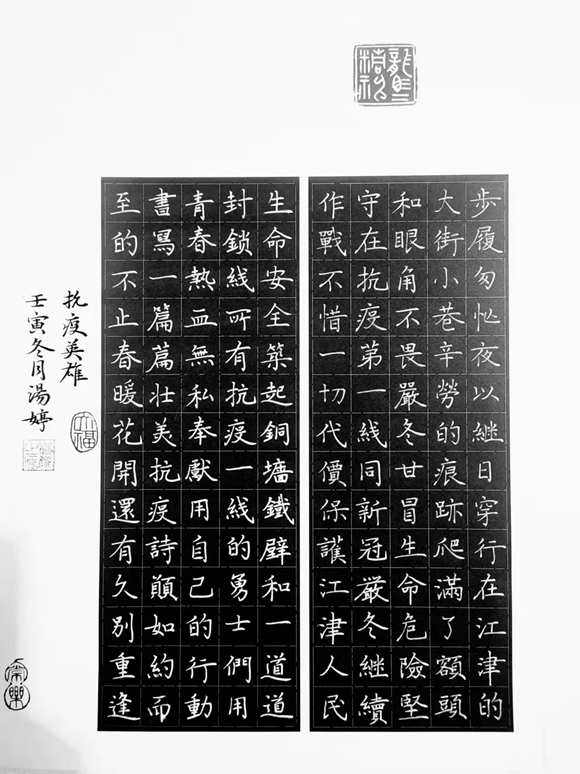 龍馬精神
步履匆忙夜以繼日穿行在江津的
大街小巷辛勞的痕跡爬滿了額頭
和眼角不畏嚴冬甘冒生命危險堅
守在抗疫第一线同新冠厳冬繼續
作戰不惜一切代價保護江津人民
生命安全築起銅墻鐵壁和一道道
封鎖线所有抗疫一线的勇士們用
青春熱血無私奉獻用自己的行動
書寫一篇篇壯美抗疫詩願如約而
至的不止春暖花開還有久別重逢
抗疫英雄
壬寅冬月湯婷
常樂